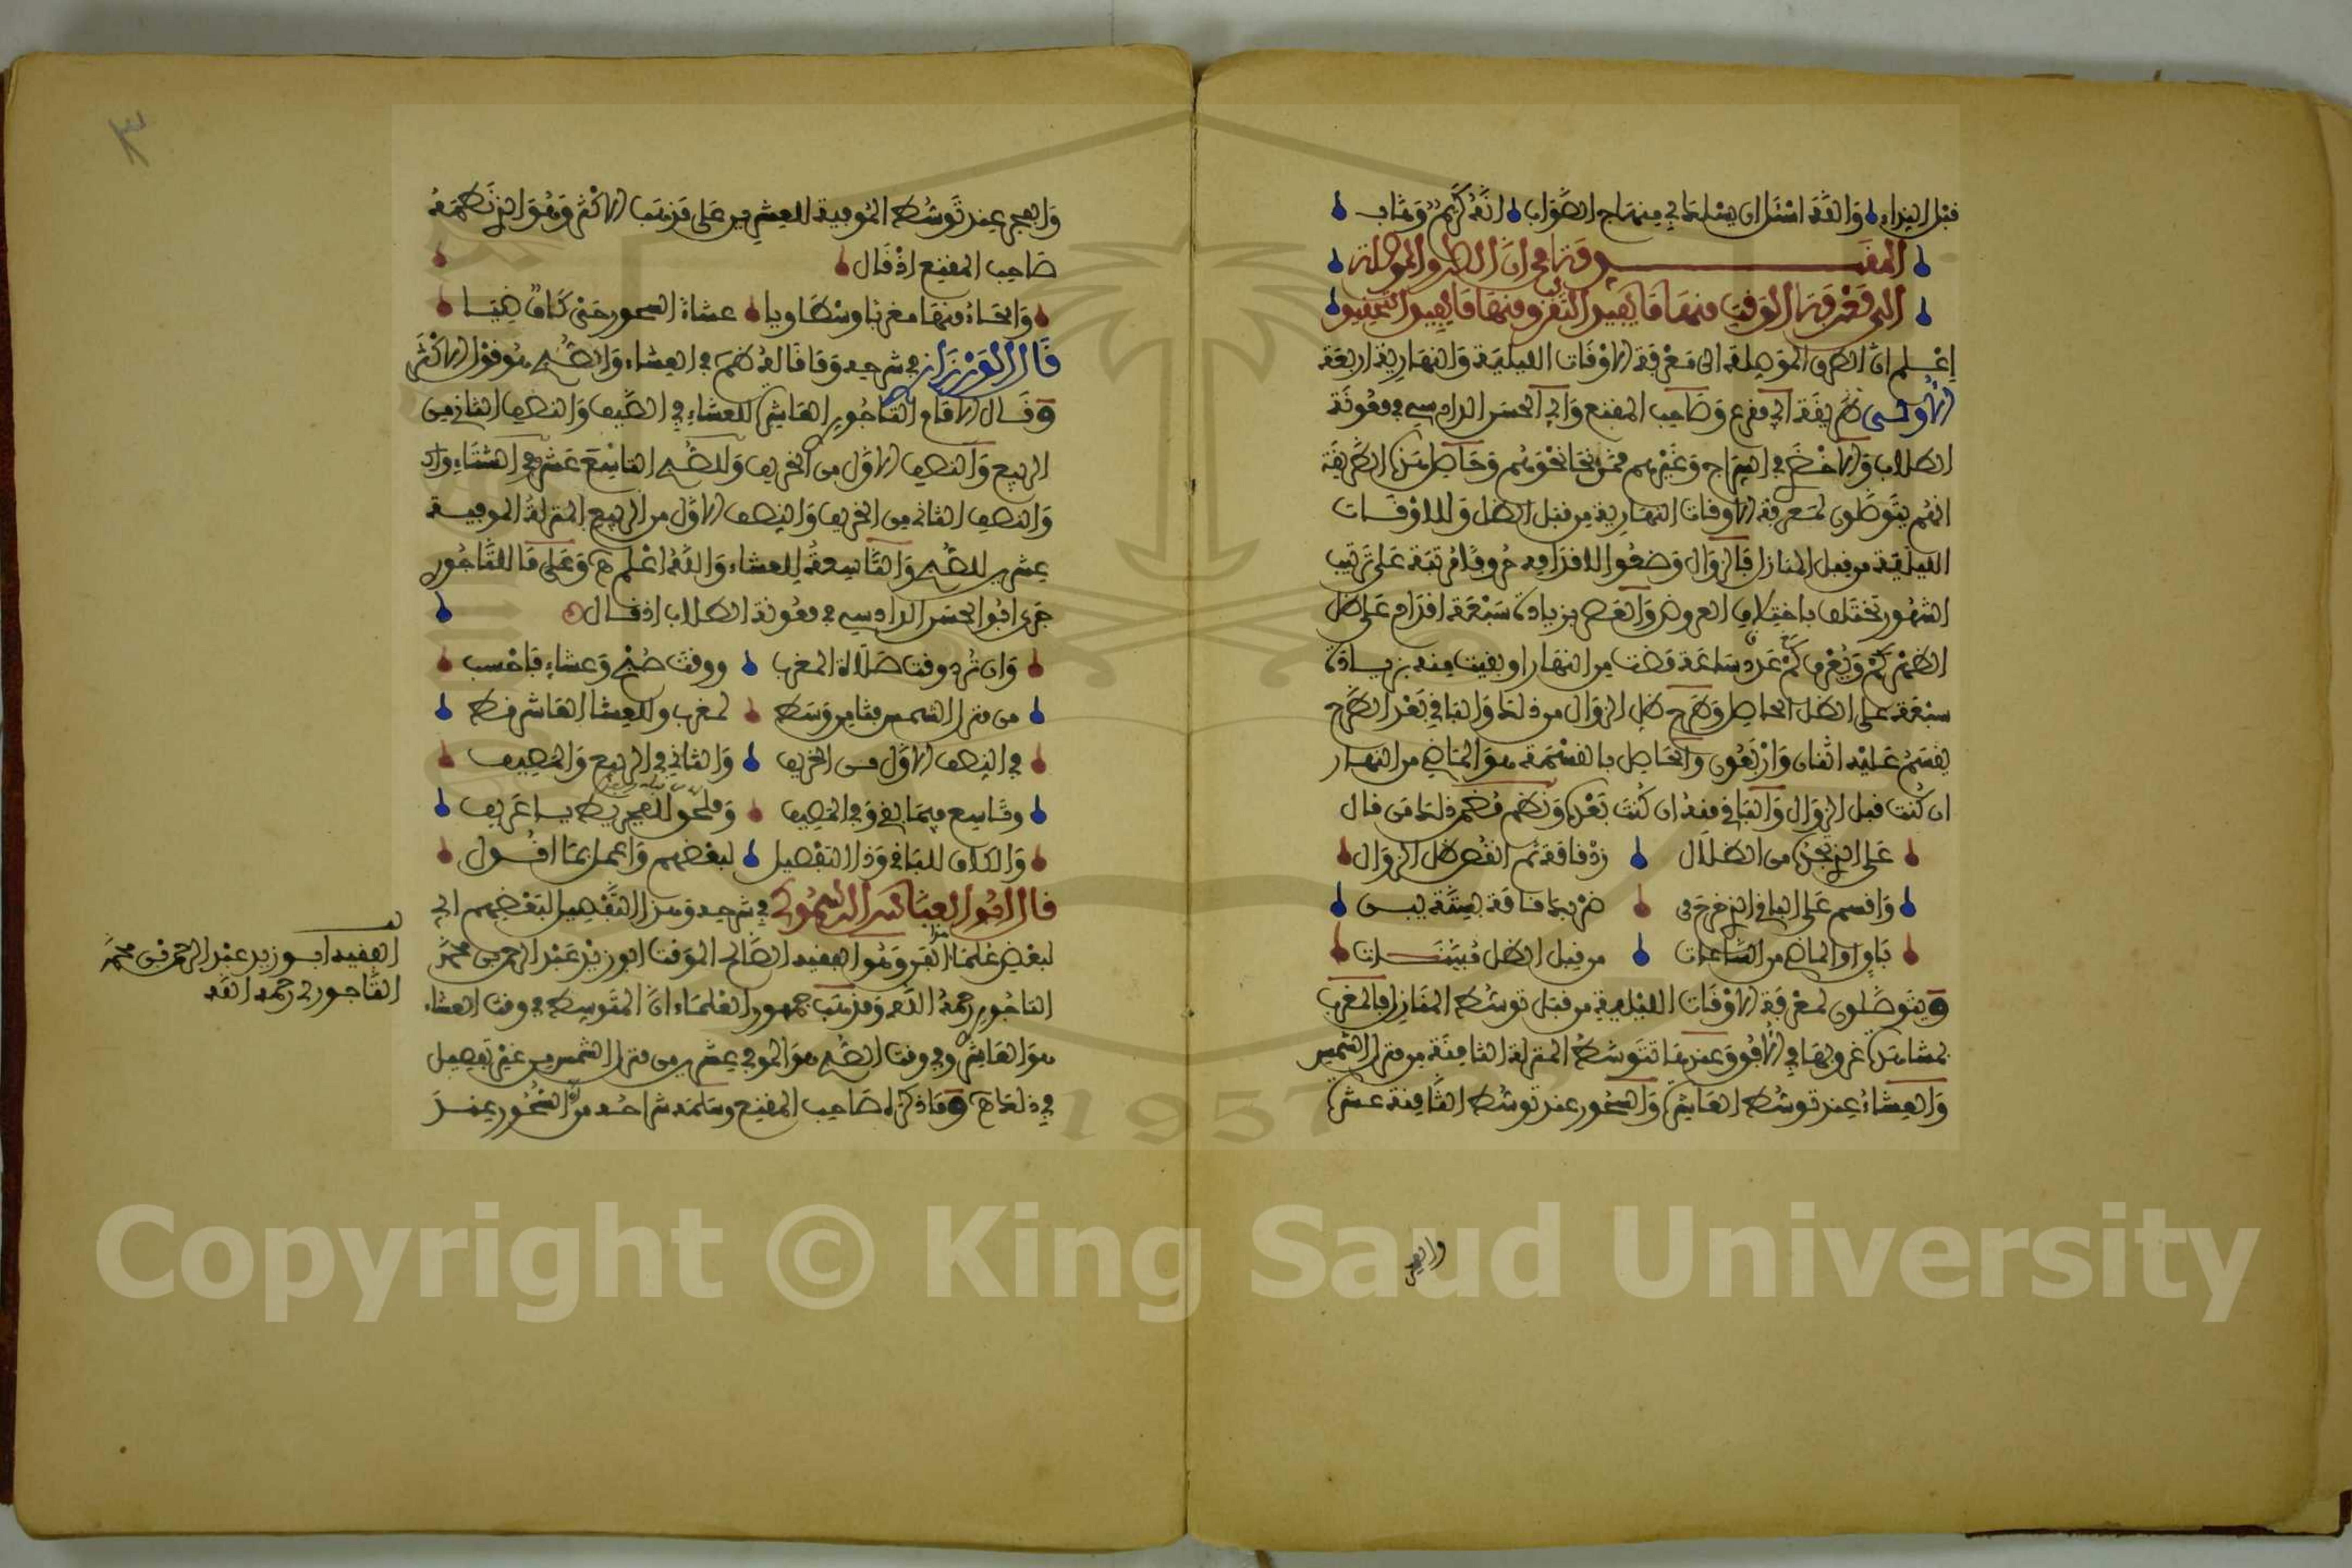 قبل النداء والله اسئل ان يسلك بي منهاج الصواب انه كريم وهاب
المقدمة في ان الطرق الموصلة
الى معرفة الوقت منها ما يفيد التقريب ومنها ما يفيد التحقيق
اعلم ان الطرق الموصلة الى معرفة الاوقات الليلية والنهارية اربعة
الاولى طريقة ابي مقرع وصاحب المقنع وابي الحسن الدادسي في معونة
الطلاب والاخضري في السراج وغيرهم ممن نحا نحوهم وحاصل هذه الطريقة
انهم يتوصلون لمعرفة الاوقات النهارية من قبل الظل وللاوقات
الليلية من قبل المنازل فالزوال وضعوا لاقدامه حروفا مرتبة على ترتيب
الشهور تختلف باختلاف العروض والعصر بزيادة سبعة اقدام على ظل
الظهر كم ويعرف كم عدد ساعة مضت من النهار او بقيت منه بزيادة
سبعة على الظل الحاصل وطرح ظل الزوال من ذلك والباقي بعد الطرح
يقسم عليه اثنان واربعون والحاصل بالقسمة هو الماضي من النهار
ان كنت قبل الزوال والباقي منه ان كنت بعده ونظم بعضهم ذلك من قال
على الذي تجده من الظلال زد قامة ثم انقص ظل الزوال
واقسم على الباقي الذي خرج من ضربك قامة بستة يبن
باق او الماضي من الساعات من قبل الظل مبينات
ويتوصلون لمعرفة الاوقات الليلية من قبل توسط المنازل فالمغرب
لمشاهدة غروبها في الافق وعندها تتوسط المنزلة الثامنة من منزل الشمس
والعشاء عند توسط العاشرة والسحور عند توسط الثامنة عشرة
والفجر
والفجر عند توسط الموفية للعشرين على مذهب الاكثر وهو الذي نظمه
صاحب المقنع اذ قال
والحاء منها مغربا وسطا ويا عشاء السحور حتى
قال الورزازي في شرحه وما قاله ظهر في العشاء والصبح هو قول الاكثر
وقال الامام التاجوري العاشرة للعشاء في الصيف والنصف الثاني من
الربيع والنصف الاول من الخريف وللصبح التاسع عشر وفي الشتاء
والنصف الثاني من الخريف والنصف الاول من الربيع المنزلة الموفية
عشرين للصبح والتاسعة للعشاء والله اعلم اهـ وعلى ما للتاجوري
جرى ابو الحسن الدادسي في معونة الطلاب اذ قال
وان ترد وقت صلاة المغرب ووقت صبح وعشاء فاحسب
من منزل الشمس بثامن وسط لمغرب وللعشا العاشر فط
في النصف الاول من الخريف والثاني في الربيع والمصيف
وتاسع فيما بقي والمصيف
والكلام للباقي وذا التفصيل لبعضهم واعمل بما اقول
قال ابو العباس الرسموكي في شرحه وهذا التفصيل لبعضهم اي
لبعض علماء الفن وهو الفقيه الصالح الموقت ابو زيد عبد الرحمن بن محمد
التاجوري رحمه الله ومذهب جمهور العلماء ان المتوسط في وقت العشاء
هو العاشرة وفي وقت الصبح هو الموفي عشرين من منزل الشمس من غير تفصيل
في ذلك اهـ وما ذكره صاحب المقنع وسلمه شراحه من ان السحور يمنع
الفقيه ابو زيد عبد الرحمن بن محمد
التاجوري رحمه الله
٣
Copyright © King Saud University
1957